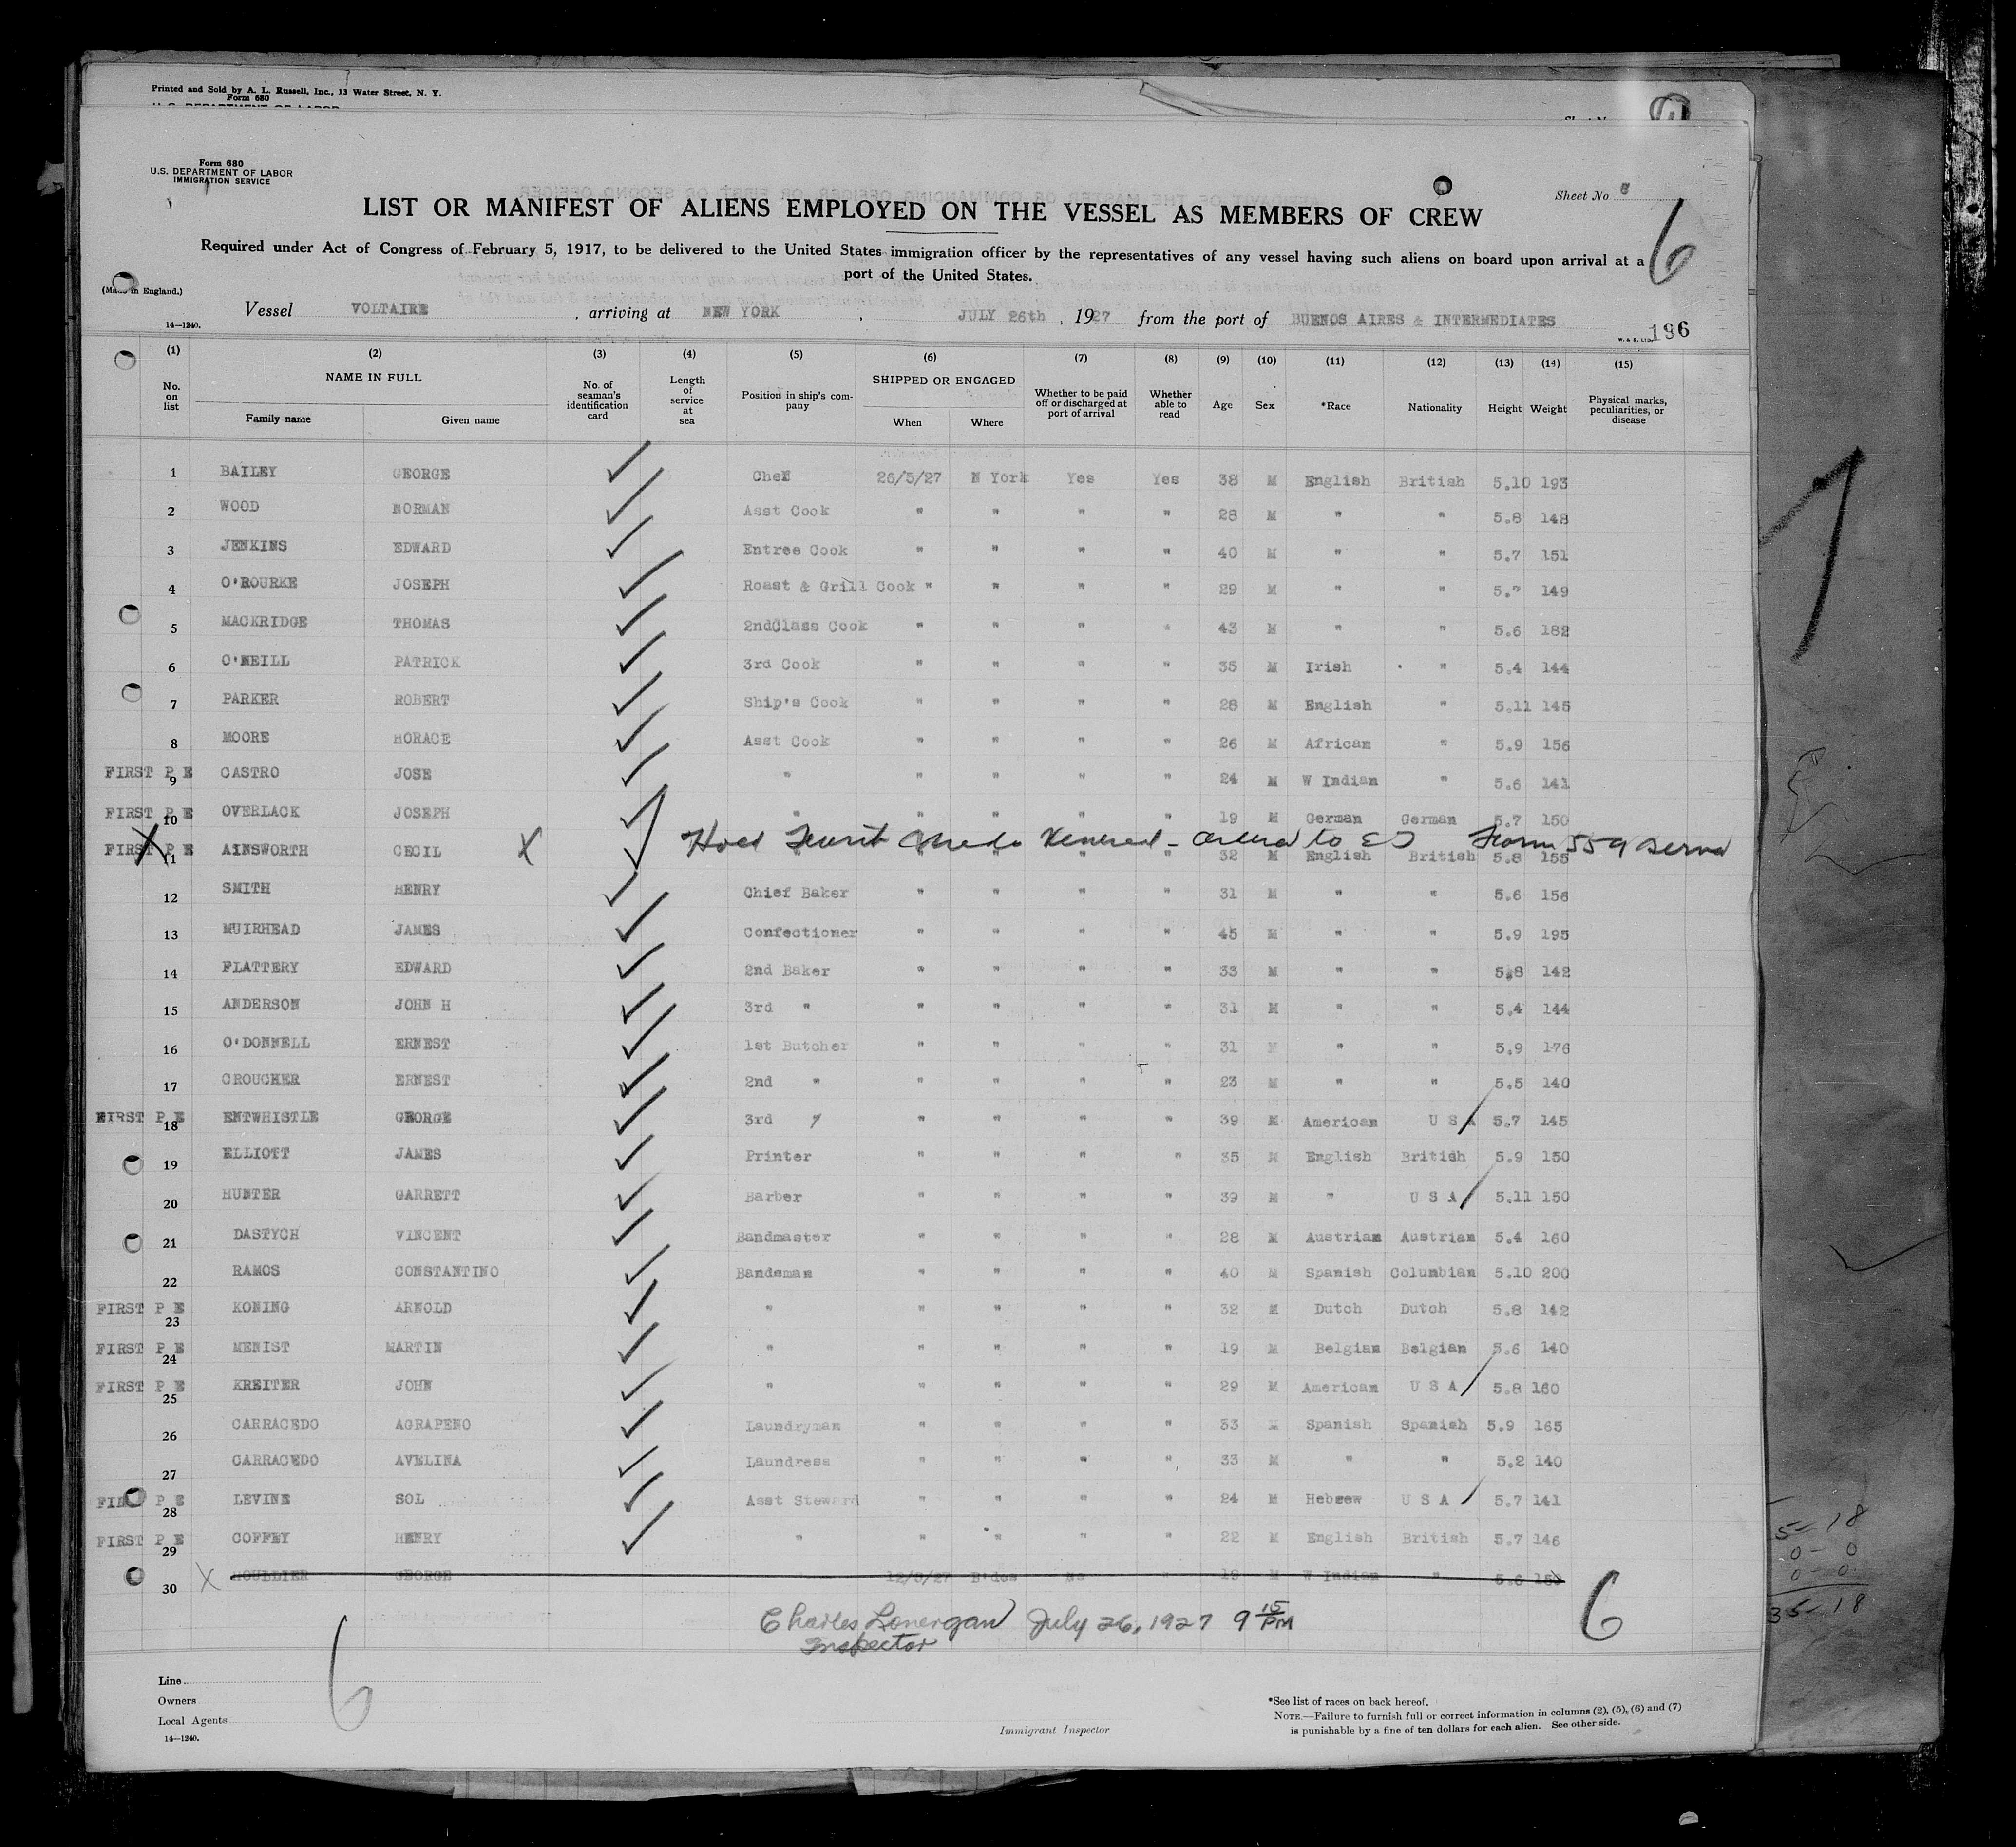 Printed and Sold by A. L. Russell, Inc., 13 Water Street, N. Y.
Form 680
U.S. DEPARTMENT OF LABOR
Form 680
U.S. DEPARTMENT OF LABOR
IMMIGRATION SERVICE
Sheet No. 8
6
LIST OR MANIFEST OF ALIENS EMPLOYED ON THE VESSEL AS MEMBERS OF CREW
Required under Act of Congress of February 5, 1917, to be delivered to the United States immigration officer by the representatives of any vessel having such aliens on board upon arrival at a
port of the United States.
(Made in England.)
Vessel VOLTAIRE, arriving at NEW YORK, JULY 26th, 1927 from the port of BUENOS AIRES & INTERMEDIATES
14—1240.
W. & S. LTD.
196
(1) (2) (3) (4) (5) (6) (7) (8) (9) (10) (11) (12) (13) (14) (15)
No. on list NAME IN FULL Family name Given name No. of seaman's identification card Length of service at sea Position in ship's company SHIPPED OR ENGAGED When Where Whether to be paid off or discharged at port of arrival Whether able to read Age Sex *Race Nationality Height Weight Physical marks, peculiarities, or disease
1 BAILEY GEORGE Chef 26/5/27 N York Yes Yes 38 M English British 5.10 193
2 WOOD NORMAN Asst Cook " " " " 28 M " " 5.8 148
3 JENKINS EDWARD Entree Cook " " " " 40 M " " 5.7 151
4 O'ROURKE JOSEPH Roast & Grill Cook " " " " 29 M " " 5.7 149
5 MACKRIDGE THOMAS 2ndClass Cook " " " " 43 M " " 5.6 182
6 O'NEILL PATRICK 3rd Cook " " " " 35 M Irish " 5.4 144
7 PARKER ROBERT Ship's Cook " " " " 28 M English " 5.11 145
8 MOORE HORACE Asst Cook " " " " 26 M African " 5.9 156
FIRST P E 9 CASTRO JOSE " " " " " 24 M W Indian " 5.6 141
FIRST P E 10 OVERLACK JOSEPH " " " " " 19 M German German 5.7 150
X FIRST P E 11 AINSWORTH CECIL X to Form 559 32 M English British 5.8 155
12 SMITH HENRY Chief Baker " " " " 31 M " " 5.6 156
13 MUIRHEAD JAMES Confectioner " " " " 45 M " " 5.9 195
14 FLATTERY EDWARD 2nd Baker " " " " 33 M " " 5.8 142
15 ANDERSON JOHN H 3rd " " " " " 31 M " " 5.4 144
16 O'DONNELL ERNEST 1st Butcher " " " " 31 M " " 5.9 176
17 CROUCHER ERNEST 2nd " " " " " 23 M " " 5.5 140
FIRST P E 18 ENTWHISTLE GEORGE 3rd " " " " " 39 M American U S A 5.7 145
19 ELLIOTT JAMES Printer " " " " 35 M English British 5.9 150
20 HUNTER GARRETT Barber " " " " 39 M " U S A 5.11 150
21 DASTYCH VINCENT Bandmaster " " " " 28 M Austrian Austrian 5.4 160
22 RAMOS CONSTANTINO Bandsman " " " " 40 M Spanish Columbian 5.10 200
FIRST P E 23 KONING ARNOLD " " " " " 32 M Dutch Dutch 5.8 142
FIRST P E 24 MENIST MARTIN " " " " " 19 M Belgian Belgian 5.6 140
FIRST P E 25 KREITER JOHN " " " " " 29 M American U S A 5.8 160
26 CARRACEDO AGRAPENO Laundryman " " " " 33 M Spanish Spanish 5.9 165
27 CARRACEDO AVELINA Laundress " " " " 33 M " " 5.2 140
P E 28 LEVINE SOL Asst Steward " " " " 24 M Hebrew U S A 5.7 141
FIRST P E 29 COFFEY HENRY " " " " " 22 M English British 5.7 146
X 30 GEORGE 12/3/27 B'dos No " 19 M W Indian " 5.6
Charles Lonergan July 26, 1927 9 15 PM
Inspector
6
6
Line
Owners
Local Agents
14—1240.
Immigrant Inspector
*See list of races on back hereof.
NOTE.—Failure to furnish full or correct information in columns (2), (5), (6) and (7)
is punishable by a fine of ten dollars for each alien. See other side.
5-18
0-0
0-0
35-18